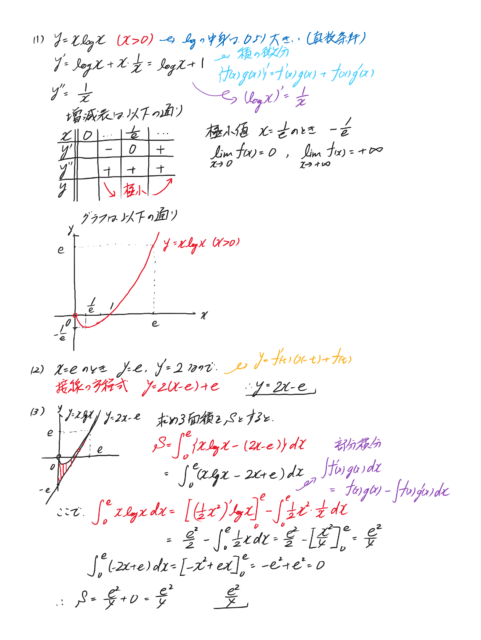 (1) y = xlogx (x>0) ← logの中身は0より大きい (真数条件)
y' = logx + x・1/x = logx + 1 ← 積の微分
{f(x)g(x)}' = f'(x)g(x) + f(x)g'(x)
y'' = 1/x
(logx)' = 1/x
増減表は以下の通り
x 0 … 1/e …
y' - 0 +
y'' + + +
y ↘ 極小 ↗
極小値 x = 1/e のとき -1/e
lim x→0 f(x) = 0 , lim x→+∞ f(x) = +∞
グラフは以下の通り
y
e
y = xlogx (x>0)
1/e 1
0 e x
-1/e
(2) x=eのとき y=e, y'=2なので ← y=f'(t)(x-t)+f(t)
接線の方程式 y=2(x-e)+e ∴ y=2x-e
(3) y y=xlogx y=2x-e 求める面積をSとすると
e
0 e x
-e
S = ∫₀ᵉ {xlogx - (2x-e)} dx
部分積分
= ∫₀ᵉ (xlogx - 2x + e) dx
∫f'(x)g(x)dx
= f(x)g(x) - ∫f(x)g'(x)dx
ここで ∫₀ᵉ xlogx dx = [(1/2 x²)' logx]₀ᵉ - ∫₀ᵉ 1/2 x²・1/x dx
= e²/2 - ∫₀ᵉ 1/2 x dx = e²/2 - [x²/4]₀ᵉ = e²/4
∫₀ᵉ (-2x+e) dx = [-x²+ex]₀ᵉ = -e²+e² = 0
∴ S = e²/4 + 0 = e²/4 e²/4